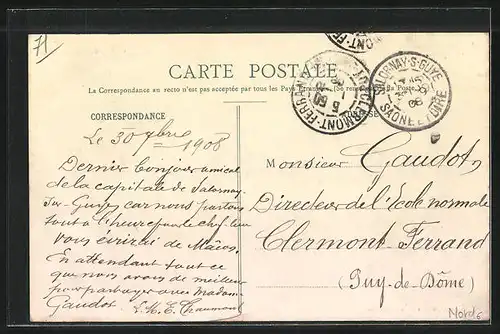 71
CARTE POSTALE
La Correspondance au recto n'est pas acceptée par tous les Pays Étrangers. (Se renseigner à la Poste)
CORRESPONDANCE
Le 30 9bre 1908
Dernier bonjour amical
de la capitale de Salornay
sur-Guye, car nous partons
tout à l'heure pour le chef-lieu
Vous écrirai de Mâcon.
En attendant tout ce
que nous avons de meilleur
pour partager avec Madame
Gaudot
Chaumont
CLERMONT-FERRAND
SALORNAY-S-GUYE
SAONE ET LOIRE
Monsieur Gaudot,
Directeur de l'École normale
Clermont-Ferrand
(Puy-de-Dôme)